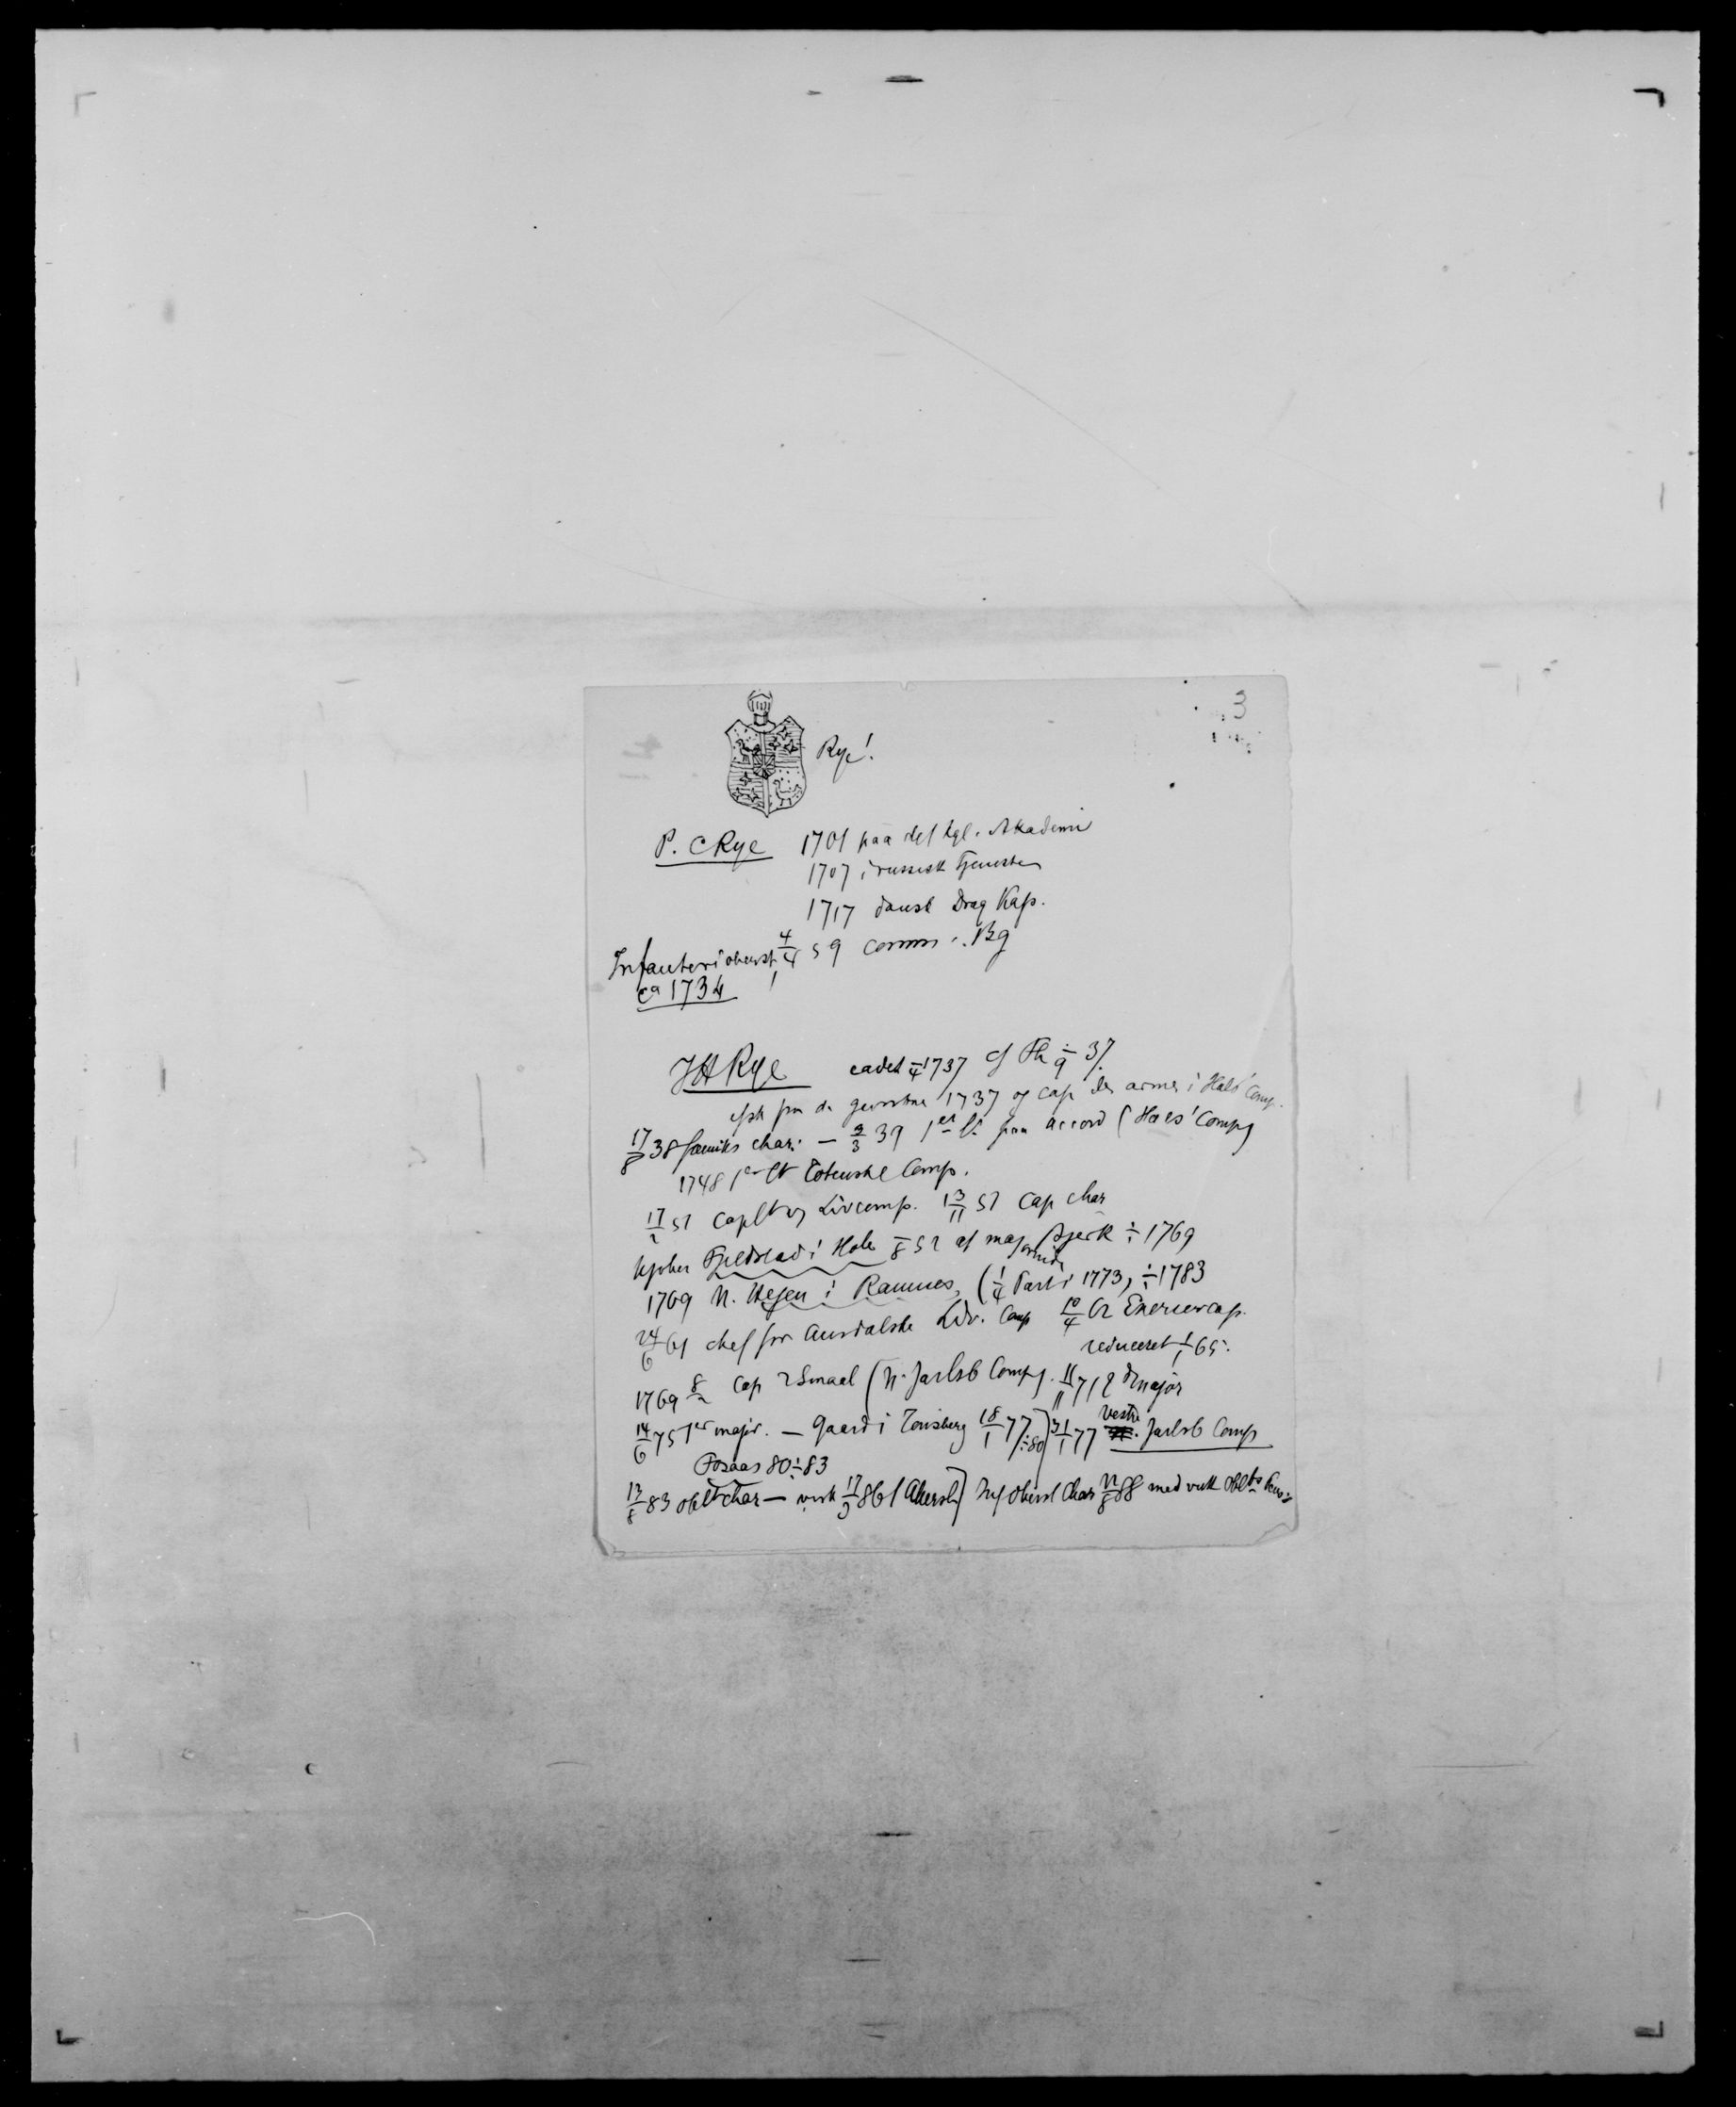 3
Rye!
P. C Rye 1701 paa det kgl. Akademi
1707 i russisk Tjeneste
1717 dansk Drag Kap.
Infanterioberst 4/4 59 comm i. Bg
ca 1734
JH Rye cadet 1737
1737 og cap des armes i Hals' Comp.
17/8 38 fæniks char: — 2/3 39 1er lt paa accord (Hals' Comp)
1748 1er lt Totenske Comp.
17/2 51 Caplt v Livcomp. 13/11 51 Cap char
kjøber Fjeldstad i Hole 52 af major Bjerk ÷ 1769
1769 N. Hesen i Ramnes, (1/4 Part i 1773, ÷ 1783
24/6 61 chef for Aurdalske Ldv. Comp 10/4 62 Exercercap.
reduceret 1/1 65.
1769 8/2 Cap 2 Smaal (N. Jarlsb Comp). 11/11 71 2d major
14/6 75 1er major. — Gaard i Tønsberg 18/1 77 ÷ 80) 31/1 77 Vestre Jarlsb Comp
Fosaas 80 ÷ 83
13/8 83 oblt char — virk 86 1 Akersh) Inf oberst Char 88 med virk oblts